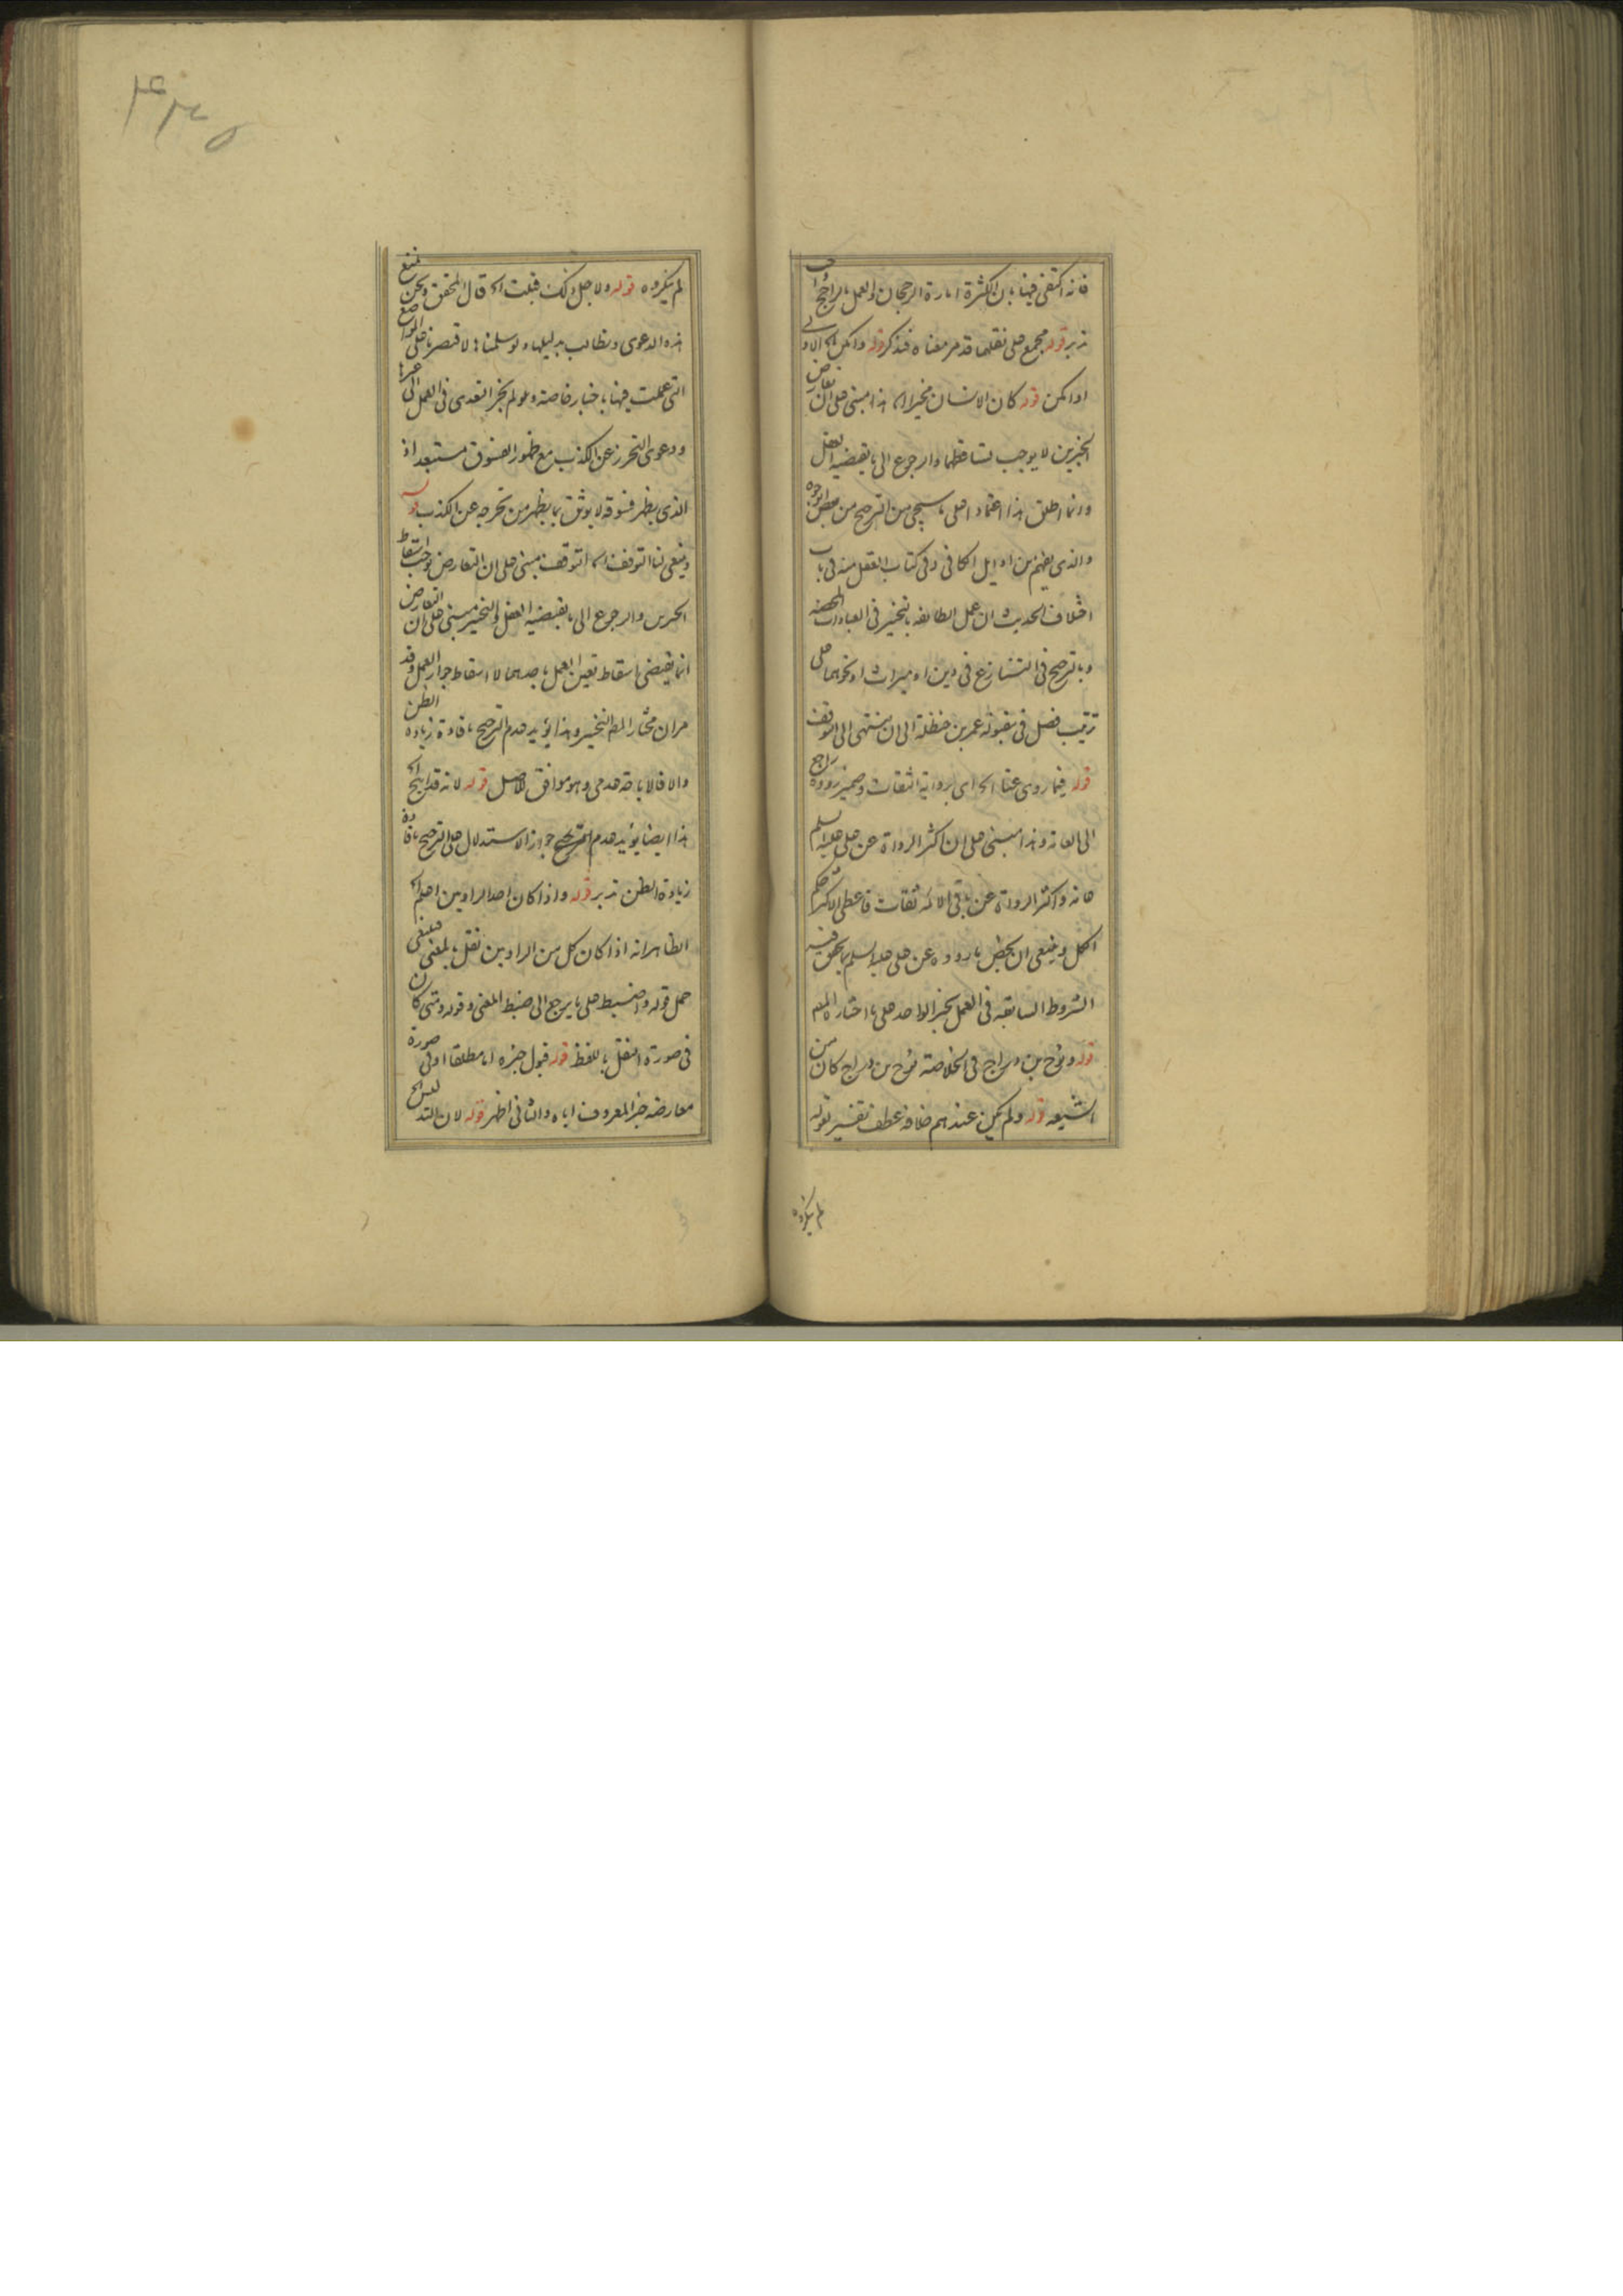 فانه اكتفى فيها بان الكثرة امارة الرجحان والعمل بالراجح واجب
تدبر قوله مجمع على نقلهما قد مر معناه فتذكر قوله وامكن الخ الاولى
او امكن قوله كان الانسان مخيرا الخ هذا مبنى على ان تعارض
الخبرين لا يوجب تساقطهما والرجوع الى ما يقتضيه العقل
وانما اطلق هذا اعتمادا على ما سيجى من الترجيح من بعض الوجوه
والذى يفهم من اوايل الكافى وفى كتاب العقل منه فى باب
اختلاف الحديث ان عمل الطائفه بالتخيير فى العبادات المحضه
وبالترجيح فى التنازع فى دين او ميراث او نحوهما على
ترتيب فصل فى مقبولة عمر بن حنظلة الى ان ينتهى الى التوقف
قوله فيما روى عنا الخ اى برواية الثقات وضمير رووه راجع
الى العامه وهذا مبنى على ان اكثر الرواة عن على عليه السلم
عامه واكثر الرواة عن باقى الائمه ثقات فاعطى الاكثر حكم
الكل وينبغى ان يخص ما رووه عن على عليه السلم بما تحقق فيه
الشروط السابقه فى العمل بخبر الواحد على ما اختاره المص
قوله ونوح بن دراج فى الخلاصة نوح بن دراج كان من
الشيعه قوله ولم يكن عندهم خلافه عطف تفسير لقوله
لم ينكروه
لم ينكروه قوله ولاجل ذلك قبلت الخ قال المحقق ونحن نمنع
هذه الدعوى ونطالب بدليلها ولو سلمنا لاقتصرنا على المواضع
التى عملت فيها باخبار خاصة ولم يجز التعدى فى العمل الى غيرها
ودعوى التحرز عن الكذب مع ظهور الفسوق مستبعد اذ
الذى يظهر فسوقه لا يوثق بما يظهر من تحرجه عن الكذب قوله
وينبغى لنا التوقف الخ التوقف مبنى على ان التعارض يوجب اسقاط
الخبرين والرجوع الى ما يقتضيه العقل والتخيير مبنى على ان التعارض
انما يقتضى اسقاط تعين العمل باحدهما لا اسقاط جواز العمل وقد
مر ان مختار المص التخيير وهذا يؤيد عدم الترجيح بافادة زيادة الظن
والا فالاباحة عدمى وهو موافق للاصل قوله لانه قد الخ
هذا ايضا يؤيد عدم جواز الاستدلال على الترجيح بافادة
زيادة الظن تدبر قوله واذا كان احد الراويين اعلم الخ
الظاهر انه اذا كان كل من الراويين نقل بالمعنى فينبغى
حمل قوله واضبط على ما يرجع الى ضبط المعنى وقوله ومتى كان
فى صورة النقل باللفظ قوله قبول خبره اما مطلقا او فى صورة
معارضه خبر المعروف اياه والثانى اظهر قوله لان التدليس الخ